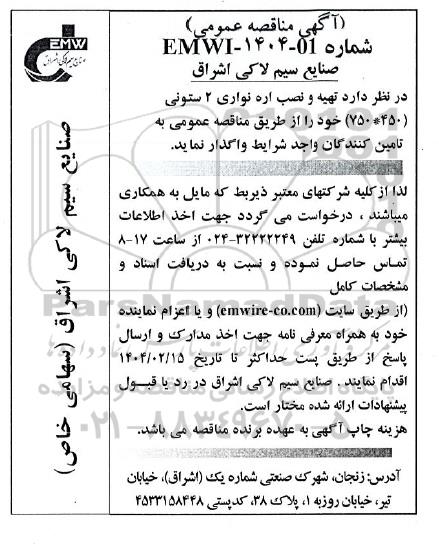 EMWI
صنایع سیم لاکی اشراق
(آگهی مناقصه عمومی)
شماره EMWI-۱۴۰۴-01
صنایع سیم لاکی اشراق
صنایع سیم لاکی اشراق (سهامی خاص)
در نظر دارد تهیه و نصب اره نواری ۲ ستونی
(۴۵۰*۷۵۰) خود را از طریق مناقصه عمومی به
تامین کنندگان واجد شرایط واگذار نماید.
لذا از کلیه شرکتهای معتبر ذیربط که مایل به همکاری
میباشند ، درخواست می گردد جهت اخذ اطلاعات
بیشتر با شماره تلفن ۳۲۲۲۲۲۴۹-۰۲۴ از ساعت ۱۷-۸
تماس حاصل نموده و نسبت به دریافت اسناد و
مشخصات کامل
(از طریق سایت (emwire-co.com) و یا اعزام نماینده
خود به همراه معرفی نامه جهت اخذ مدارک و ارسال
پاسخ از طریق پست حداکثر تا تاریخ ۱۴۰۴/۰۲/۱۵
اقدام نمایند . صنایع سیم لاکی اشراق در رد یا قبول
پیشنهادات ارائه شده مختار است.
هزینه چاپ آگهی به عهده برنده مناقصه می باشد.
آدرس: زنجان، شهرک صنعتی شماره یک (اشراق)، خیابان
تیر، خیابان روزبه ۱، پلاک ۳۸، کدپستی ۴۵۳۳۱۵۸۴۴۸
ParsNamadData
۰۲۱-۸۸۳۴۹۶۷۰-۵